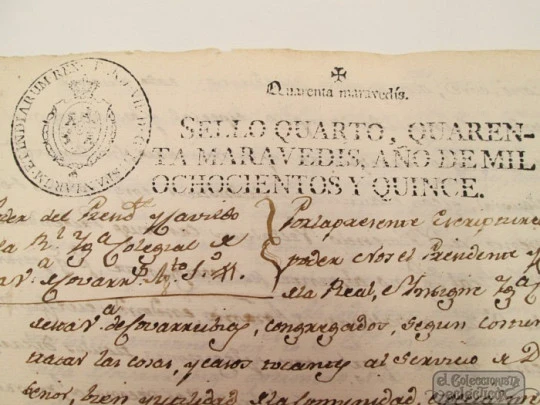 Quarenta maravedis.
SELLO QUARTO, QUAREN-
TA MARAVEDIS, AÑO DE MIL
OCHOCIENTOS Y QUINCE.
HISPANIARUM ET INDIARUM REX
Poder del Presid.te y Cavildo
la R.l Yg.a Colegial de
la V.a de Covarr.s
Por la presente Escriptura
poder Nos el Presidente y
de la Real, e Insigne Yg.a C
de esta V.a de Covarrubias, congregados, segun
tratar las cosas, y casos tocantes al Servicio de D
Señor, bien y utilidad de la Comunidad
el Coleccionista
ecléctico